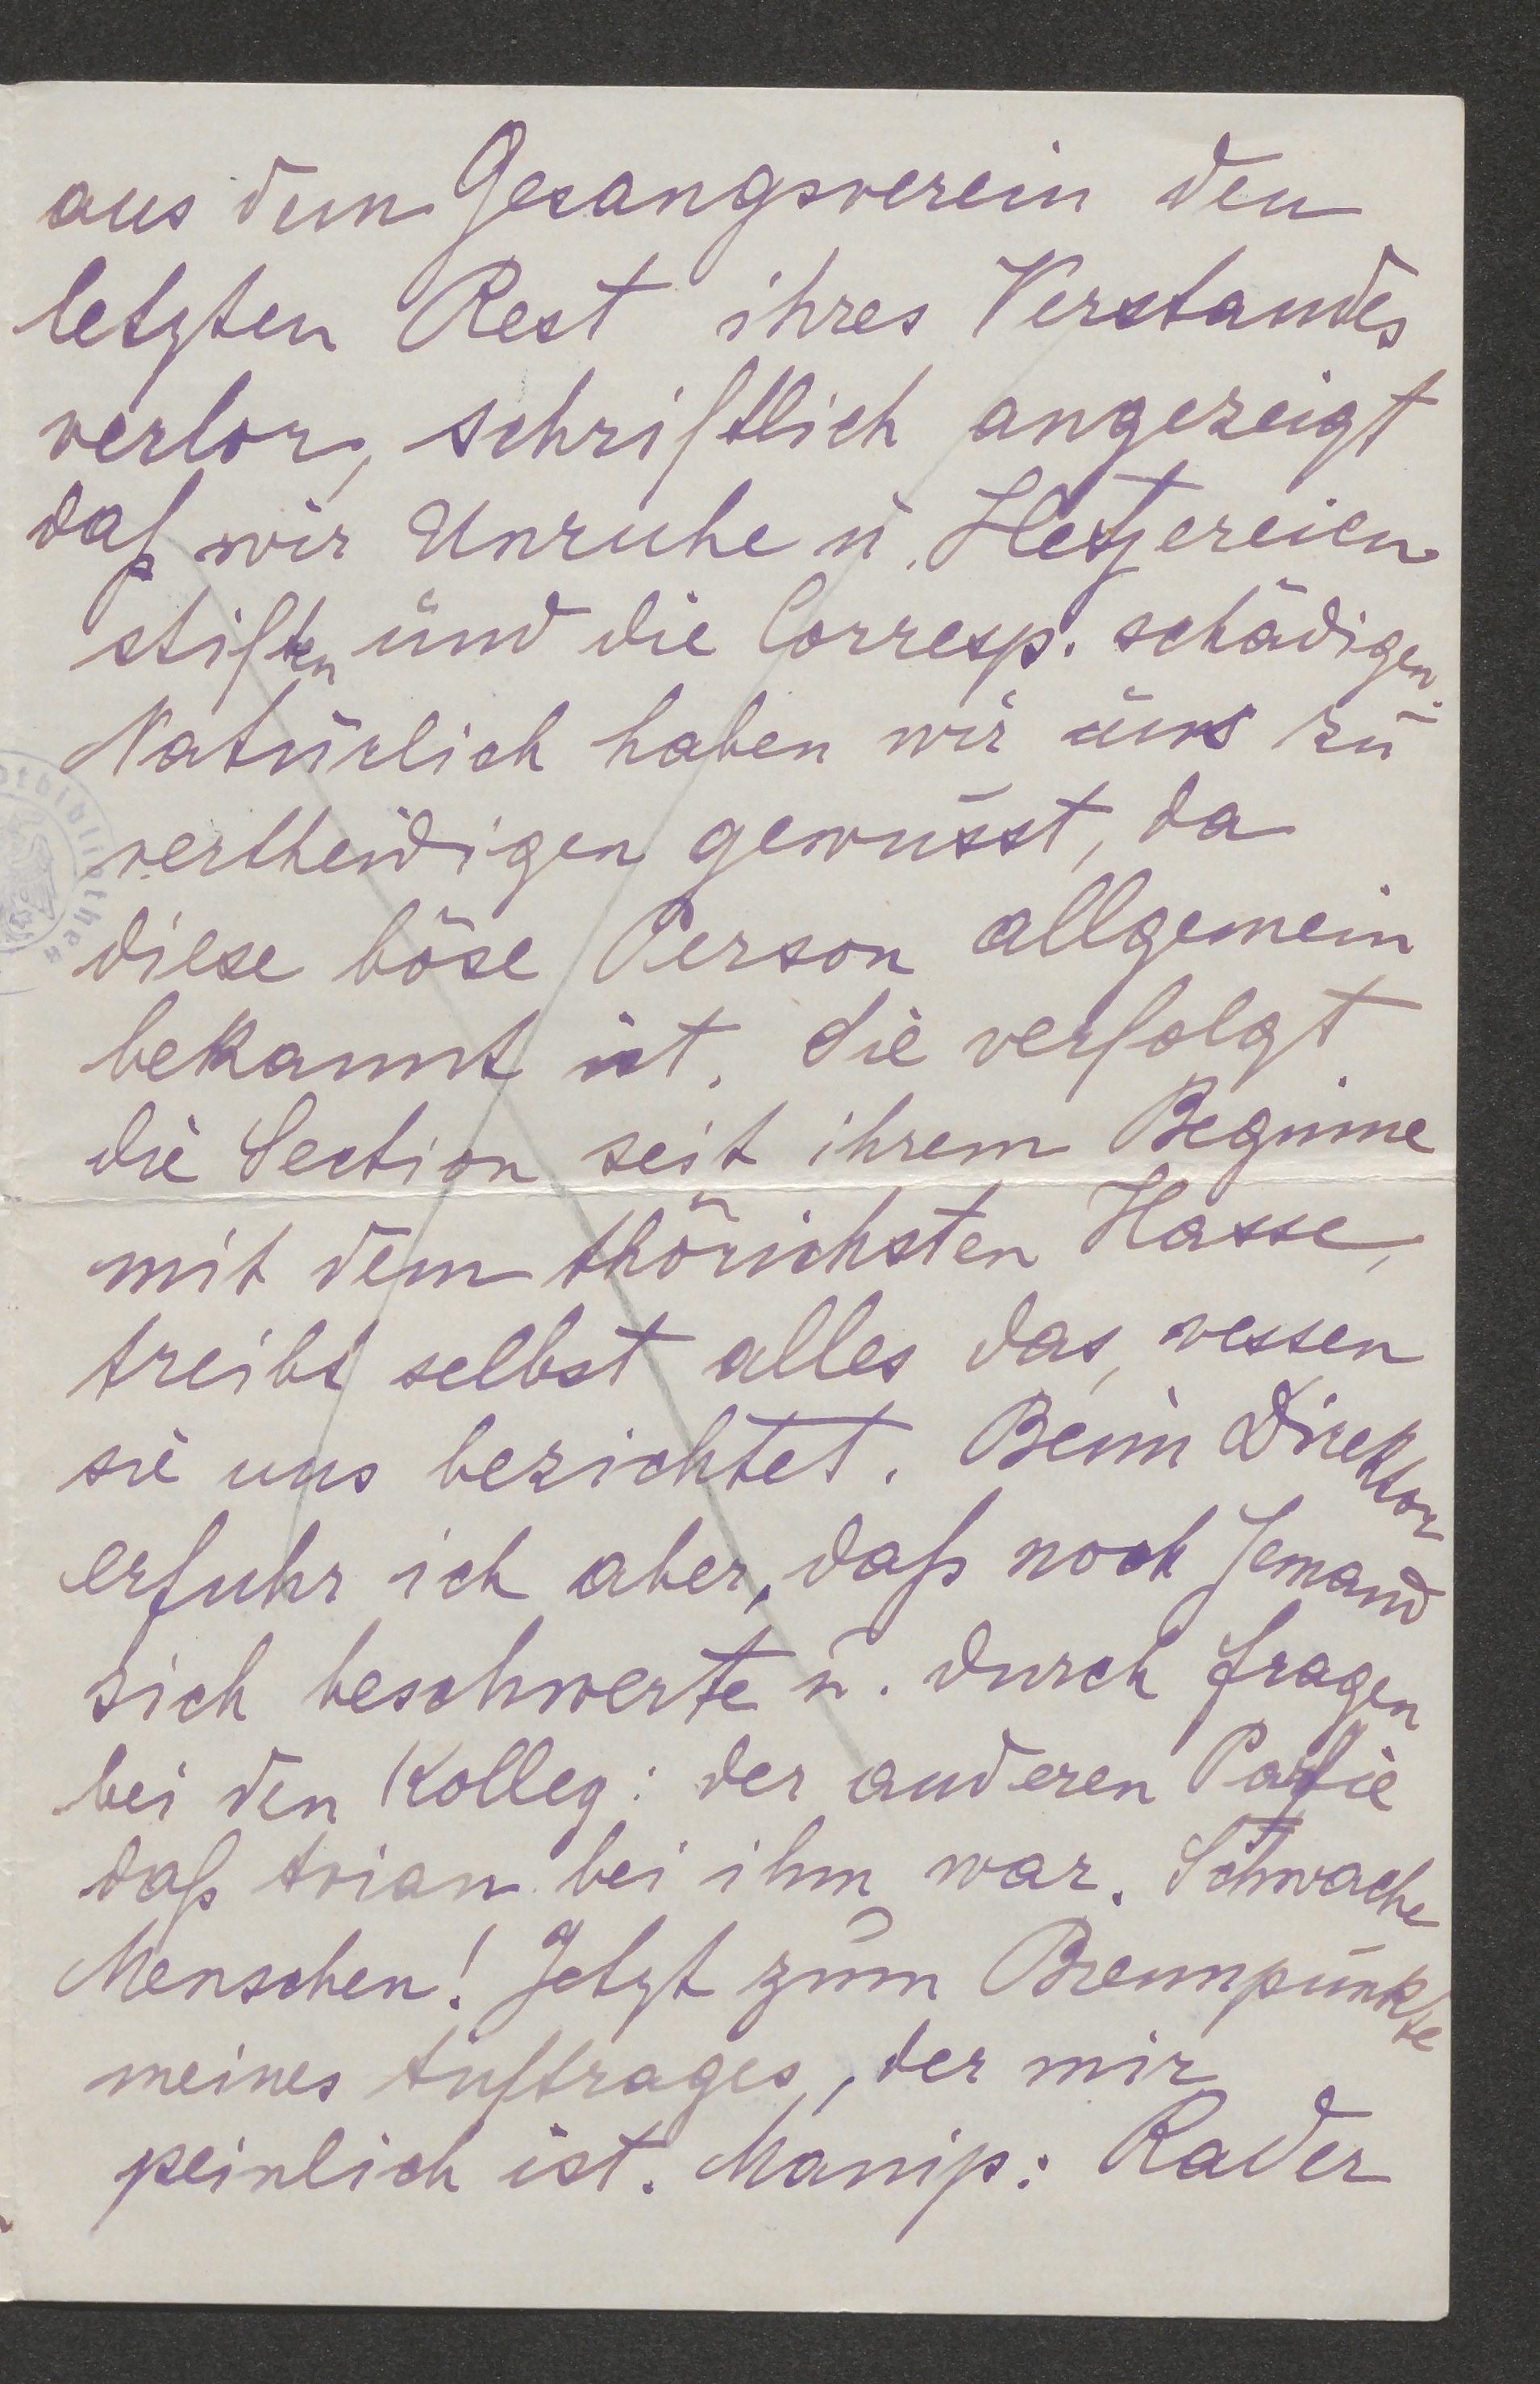 aus dem Gesangsverein den
letzten Rest ihres Verstandes
verlor, schriftlich angezeigt
daß wir Unruhe u. Hetzereien
stiften und die Corresp. schädigen.
Natürlich haben wir uns zu
vertheidigen gewusst, da
diese böse Person allgemein
bekannt ist. Sie verfolgt
die Section seit ihrem Beginne
mit dem thörichsten Hasse,
treibt selbst alles das, wessen
sie uns bezichtet. Beim Direktor
erfuhr ich aber, daß noch Jemand
sich beschwerte u. durch fragen
bei den Kolleg: der anderen Partie
daß bei ihm war. Schwache
Menschen! Jetzt zum Brennpunkte
meines Auftrages, der mir
peinlich ist. Manip: Rader